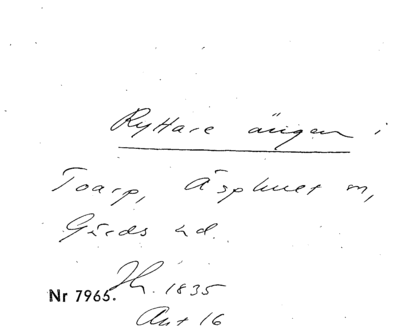 Ryttare ängen i
Toarp, Äsphult m,
Gärds hd.
Nr 7965. Th. 1835
Ant 16